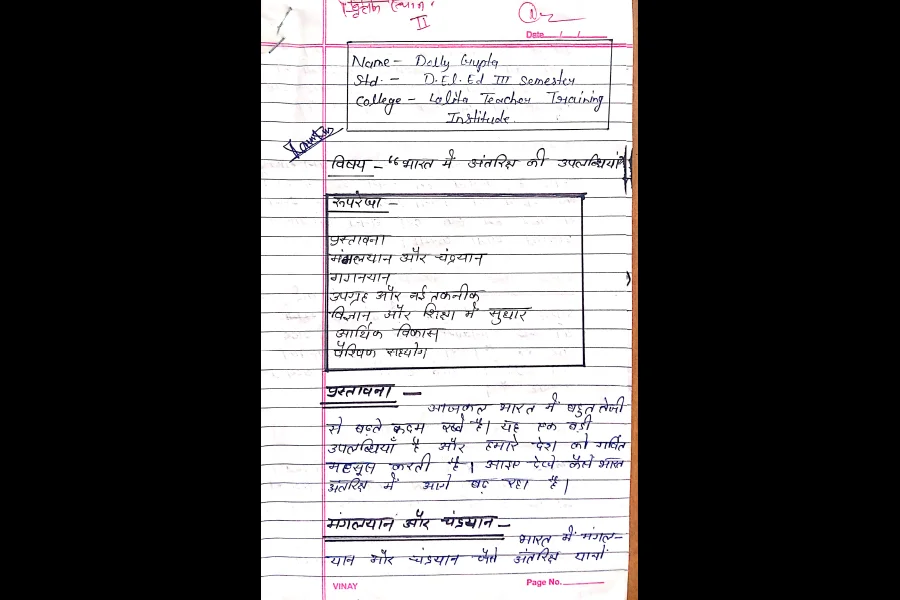 द्वितीय स्थान
II
Date / /
Name - Dolly Gupta
Std. - D.El.Ed III Semester
College - Lalita Teacher Training
Institude.
विषय - "भारत में अंतरिक्ष की उपलब्धियां"
रूपरेखा -
प्रस्तावना
मंगलयान और चंद्रयान
गगनयान
उपग्रह और नई तकनीक
विज्ञान और शिक्षा में सुधार
आर्थिक विकास
वैश्विक सहयोग
प्रस्तावना -
आजकल भारत में बहुत तेजी
से बढ़ते कदम रखे है। यह एक बड़ी
उपलब्धियाँ है और हमारे देश को गर्वित
महसूस करती है। आइए देखे कैसे भारत
अंतरिक्ष में आगे बढ़ रहा है।
मंगलयान और चंद्रयान -
भारत में मंगल-
यान और चंद्रयान जैसे अंतरिक्ष यानों
VINAY
Page No.